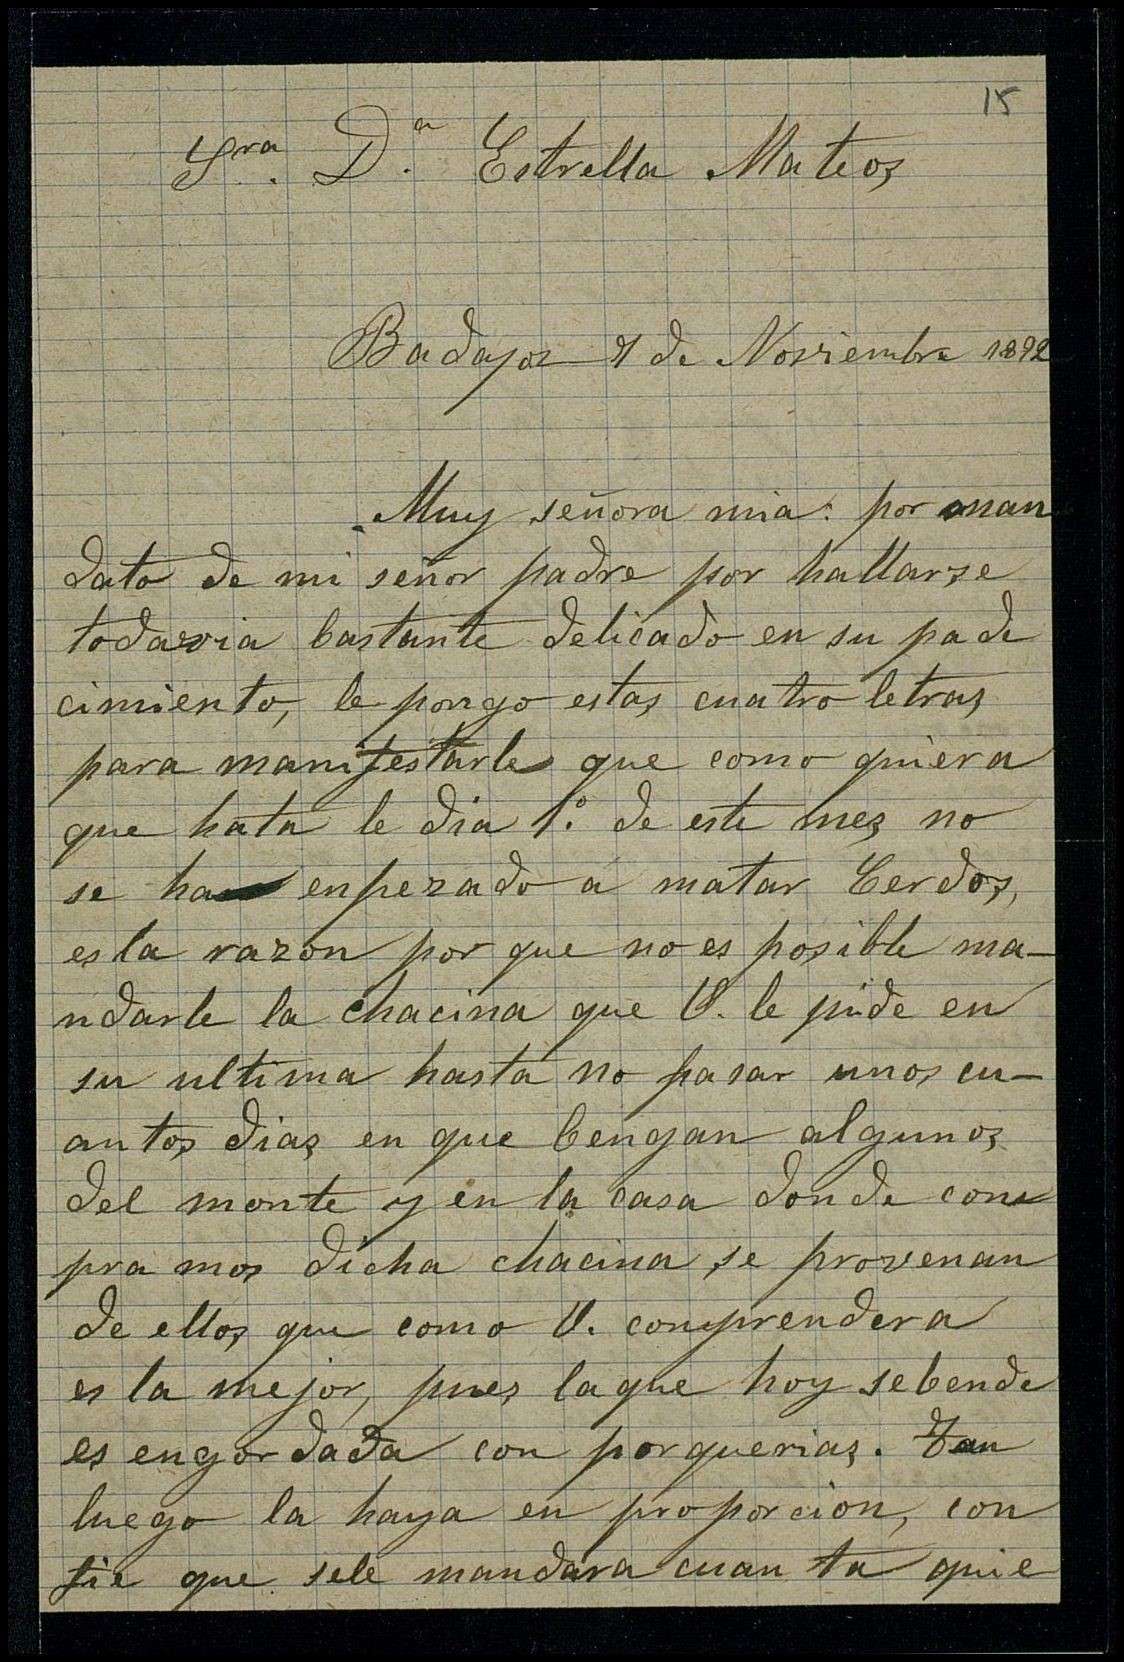 15
Sra. Dª. Estrella Mateos
Badajoz 7 de Noviembre 1892
Muy señora mia: por man
dato de mi señor padre por hallarse
todavia bastante delicado en su pade
cimiento, le pongo estas cuatro letras
para manifestarle que como quiera
que hata le dia 1.º de este mes no
se ha enpezado a matar Cerdos,
es la razon por que no es posible ma-
ndarle la chacina que V. le pide en
su ultima hasta no pasar unos cu-
antos dias en que bengan algunos
del monte y en la casa donde com
pra mos dicha chacina se provenan
de ellos que como V. comprendera
es la mejor, pues la que hoy se bende
es engordada con porquerias. Tan
luego la haya en proporcion, con
fie que sele mandara cuan ta quie